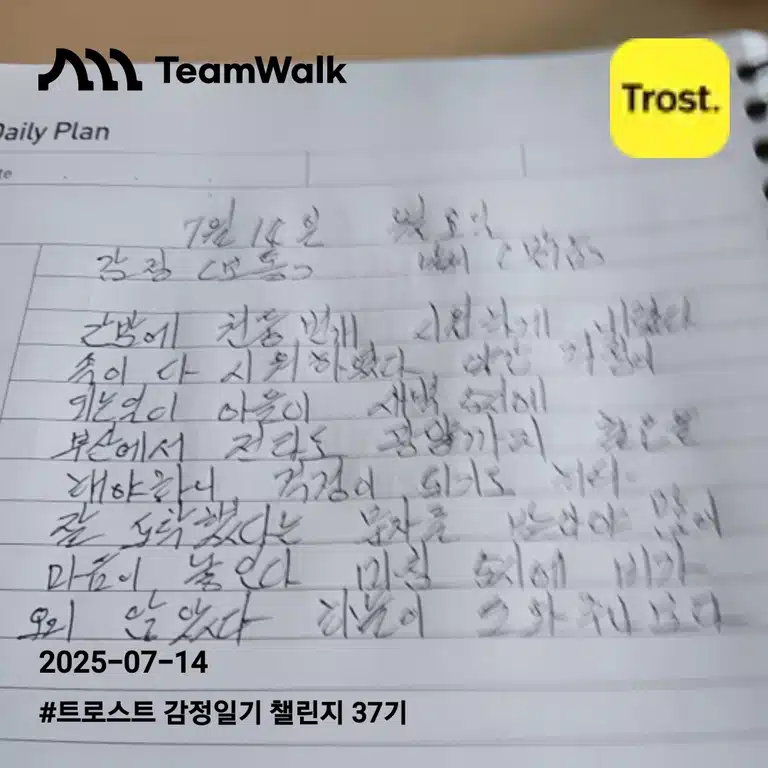 TeamWalk
Trost.
Daily Plan
te
7월 14일 월요일
감정 (보통)
간밤에 천둥번개 시원하게 내렸다
속이 다 시원하였다 약간 걱정이
되는것이 아들이 새벽 5시에
부산에서 전라도 광양까지
해야하니 걱정이 되기도
잘 도착했다는 문자를 받아야
마음이 놓인다 5시에 비가
오지 않았다 하늘이 도와
2025-07-14
#트로스트 감정일기 챌린지 37기